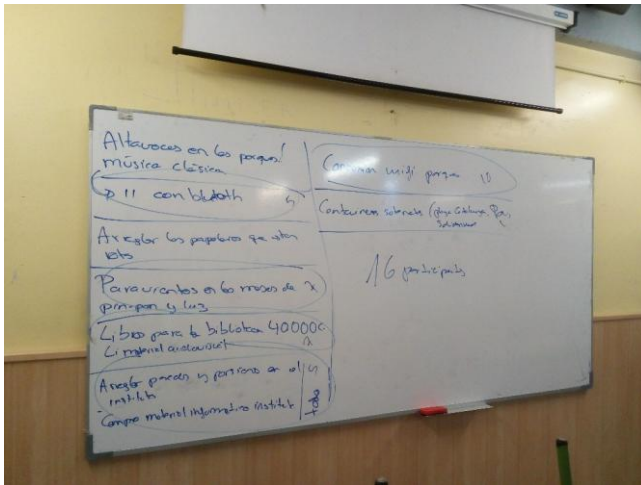 Altavoces en los parques/
música clásica
" con bluetoth
Arreglar las papeleras que estan
rotas
Paravientos en las mesas de
pin-pon y luz
Libros para la biblioteca 40000€
material audiovisual
Arreglar paredes y en el
instituto
todo
- Compra material informatico instituto
wifi parques 10
Contenedores soterrats (plaça Catalunya,
16 participants